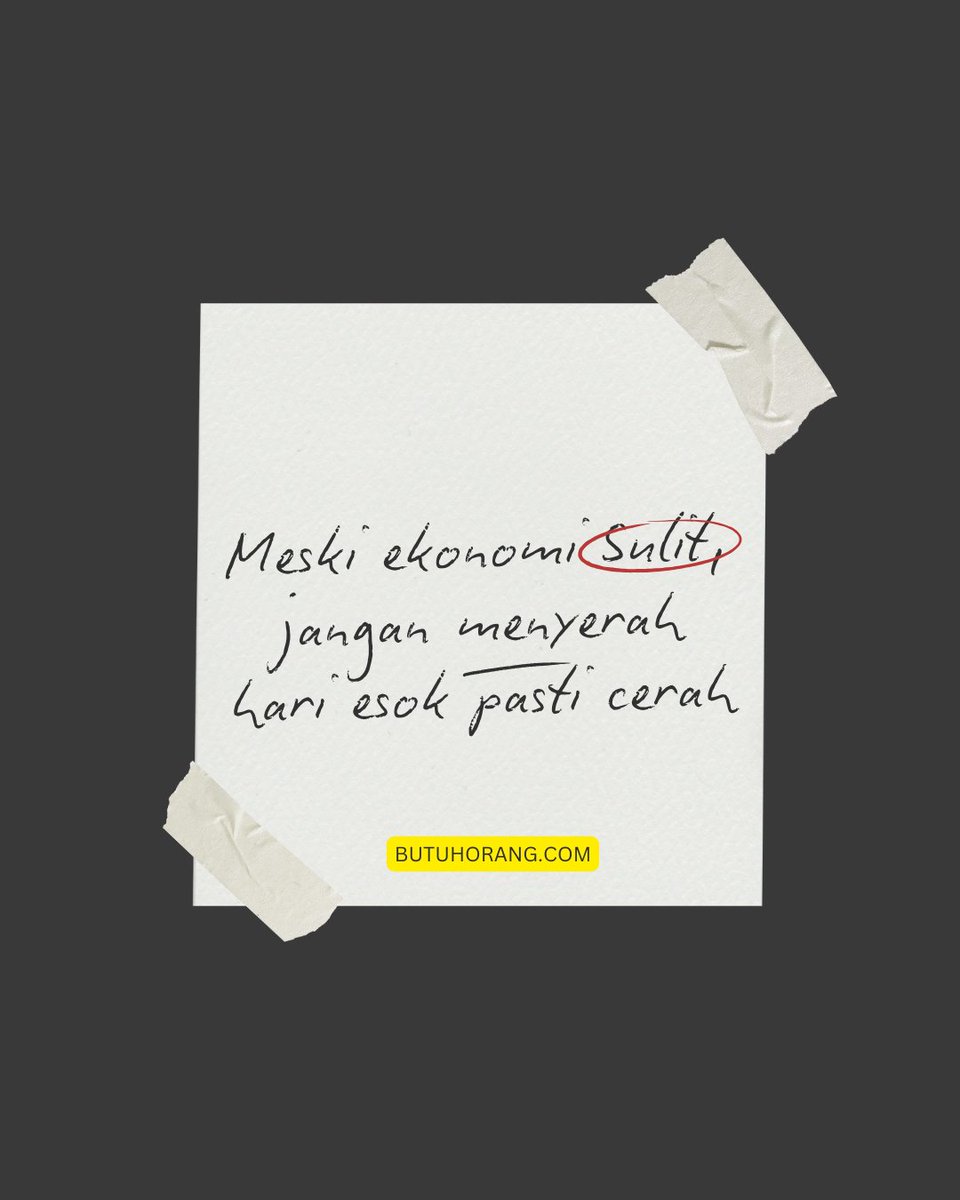 Meski ekonomi sulit,
jangan menyerah
hari esok pasti cerah
BUTUHORANG.COM